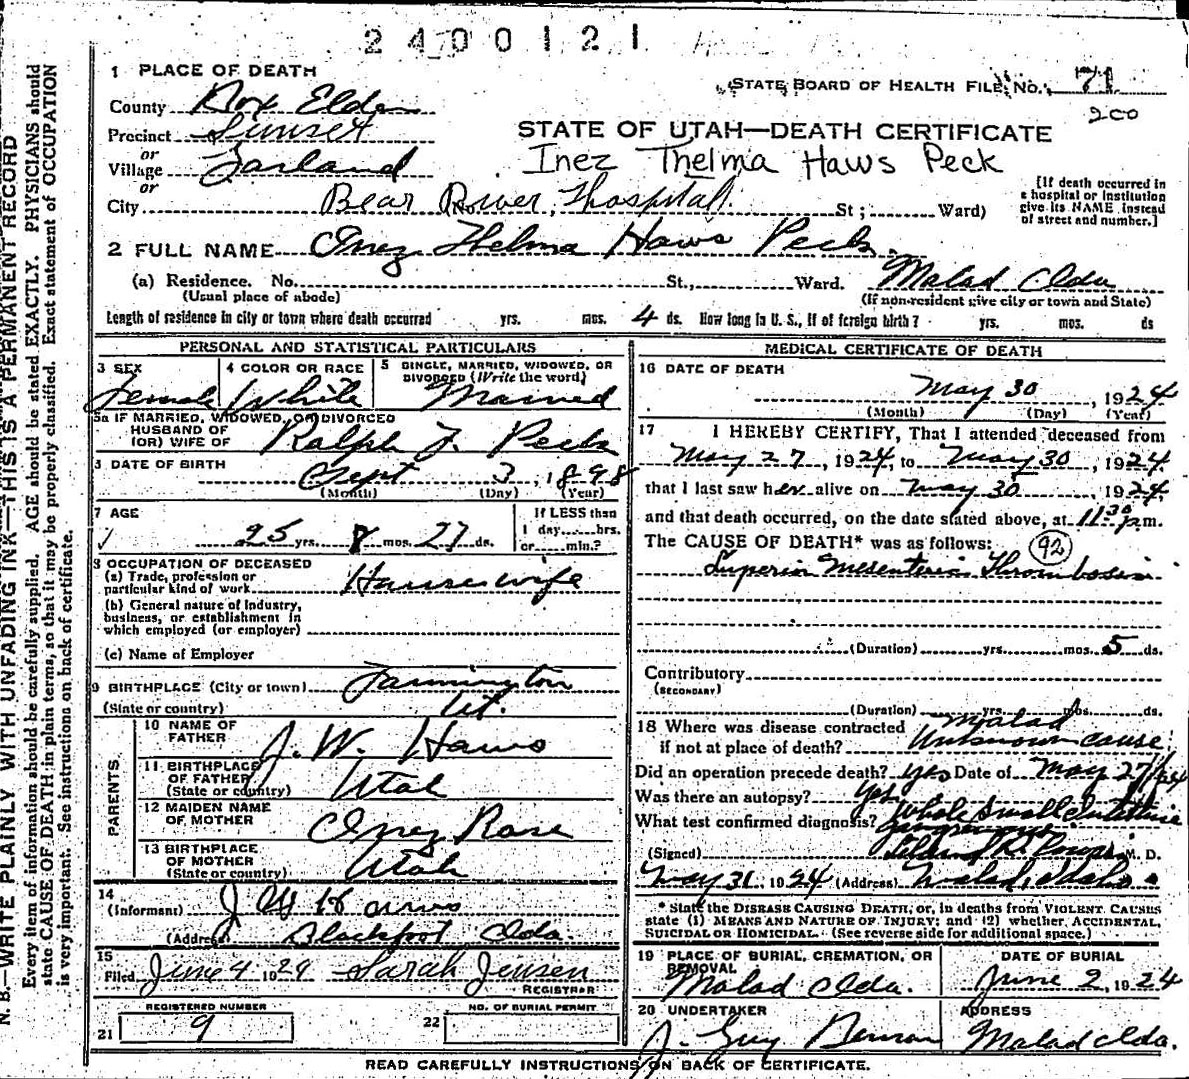 2400121
1 PLACE OF DEATH
STATE BOARD OF HEALTH FILE No. 71
County Box Elder
200
Precinct Sunset
STATE OF UTAH—DEATH CERTIFICATE
or
Village Garland
Inez Thelma Haws Peck
or
City Bear River Hospital St; Ward)
[If death occurred in
a hospital or institution
give its NAME instead
of street and number.]
2 FULL NAME Inez Thelma Haws Peck.
(a) Residence. No. St., Ward. Malad Ida
(Usual place of abode) (If non-resident give city or town and State)
Length of residence in city or town where death occurred yrs. mos. 4 ds. How long in U. S., if of foreign birth? yrs. mos. ds
PERSONAL AND STATISTICAL PARTICULARS
3 SEX
Female
4 COLOR OR RACE
White
5 SINGLE, MARRIED, WIDOWED, OR
DIVORCED (Write the word)
Married
5a IF MARRIED, WIDOWED, OR DIVORCED
HUSBAND OF
(OR) WIFE OF Ralph J. Peck
DATE OF BIRTH Sept 3, 1898
(Month) (Day) (Year)
7 AGE
25 yrs. 8 mos. 27 ds.
If LESS than
1 day hrs.
or min.?
8 OCCUPATION OF DECEASED
(a) Trade, profession or
particular kind of work Housewife
(b) General nature of industry,
business, or establishment in
which employed (or employer)
(c) Name of Employer
9 BIRTHPLACE (City or town) Farmington
(State or country) Ut.
PARENTS
10 NAME OF
FATHER J. W. Haws
11 BIRTHPLACE
OF FATHER
(State or country) Utah
12 MAIDEN NAME
OF MOTHER Inez Rose
13 BIRTHPLACE
OF MOTHER
(State or country) Utah
14
(Informant) J W Haws
(Address) Blackfoot Ida.
15
Filed June 4 1924 Sarah Jensen
REGISTRAR
REGISTERED NUMBER
21 9
NO. OF BURIAL PERMIT
22
MEDICAL CERTIFICATE OF DEATH
16 DATE OF DEATH
May 30, 1924
(Month) (Day) (Year)
17 I HEREBY CERTIFY, That I attended deceased from
May 27, 1924, to May 30, 1924
that I last saw her alive on May 30 1924
and that death occurred, on the date stated above, at 11:30 p.m.
The CAUSE OF DEATH* was as follows: 92
Superior Mesenteric Thrombosis
(Duration) yrs. mos. 5 ds.
Contributory
(SECONDARY)
(Duration) yrs. mos. ds.
18 Where was disease contracted Malad
if not at place of death? Unknown cause
Did an operation precede death? yes Date of May 27/24
Was there an autopsy? Yes
What test confirmed diagnosis? Whole Small Intestine
gangrenous
(Signed) M. D.
May 31, 1924 (Address) Malad, Idaho
* State the DISEASE CAUSING DEATH, or, in deaths from VIOLENT CAUSES
state (1) MEANS AND NATURE OF INJURY; and (2) whether ACCIDENTAL,
SUICIDAL OR HOMICIDAL. (See reverse side for additional space.)
19 PLACE OF BURIAL, CREMATION, OR
REMOVAL
Malad Ida.
DATE OF BURIAL
June 2, 1924
20 UNDERTAKER
J. Guy Benson
ADDRESS
Malad Ida.
READ CAREFULLY INSTRUCTIONS ON BACK OF CERTIFICATE.
N. B.—WRITE PLAINLY WITH UNFADING INK—THIS IS A PERMANENT RECORD
Every item of information should be carefully supplied. AGE should be stated EXACTLY. PHYSICIANS should
state CAUSE OF DEATH in plain terms, so that it may be properly classified. Exact statement of OCCUPATION
is very important. See instructions on back of certificate.